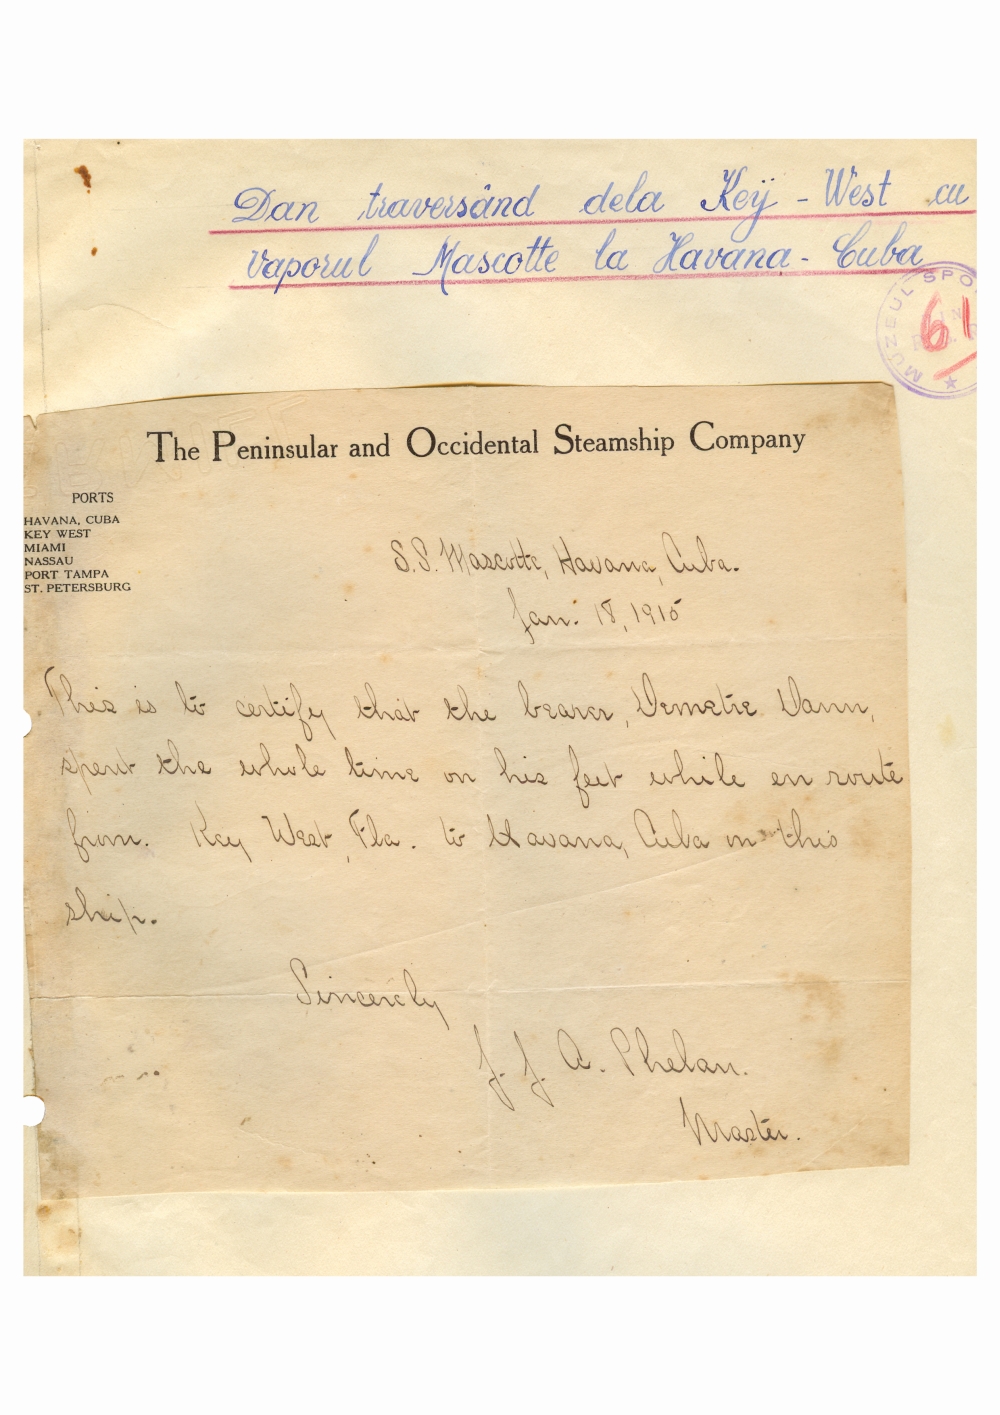 Dan traversând dela Keÿ - West cu
vaporul Mascotte la Havana - Cuba
MUZEUL SPO
61
The Peninsular and Occidental Steamship Company
PORTS
HAVANA, CUBA
KEY WEST
MIAMI
NASSAU
PORT TAMPA
ST. PETERSBURG
S.S. Mascotte, Havana, Cuba.
Jan. 18, 1915
This is to certify that the bearer, Demetre Dann,
spent the whole time on his feet while en route
from. Key West, Fla. to Havana, Cuba on this
ship.
Sincerely
J. J. A. Phelan.
Master.